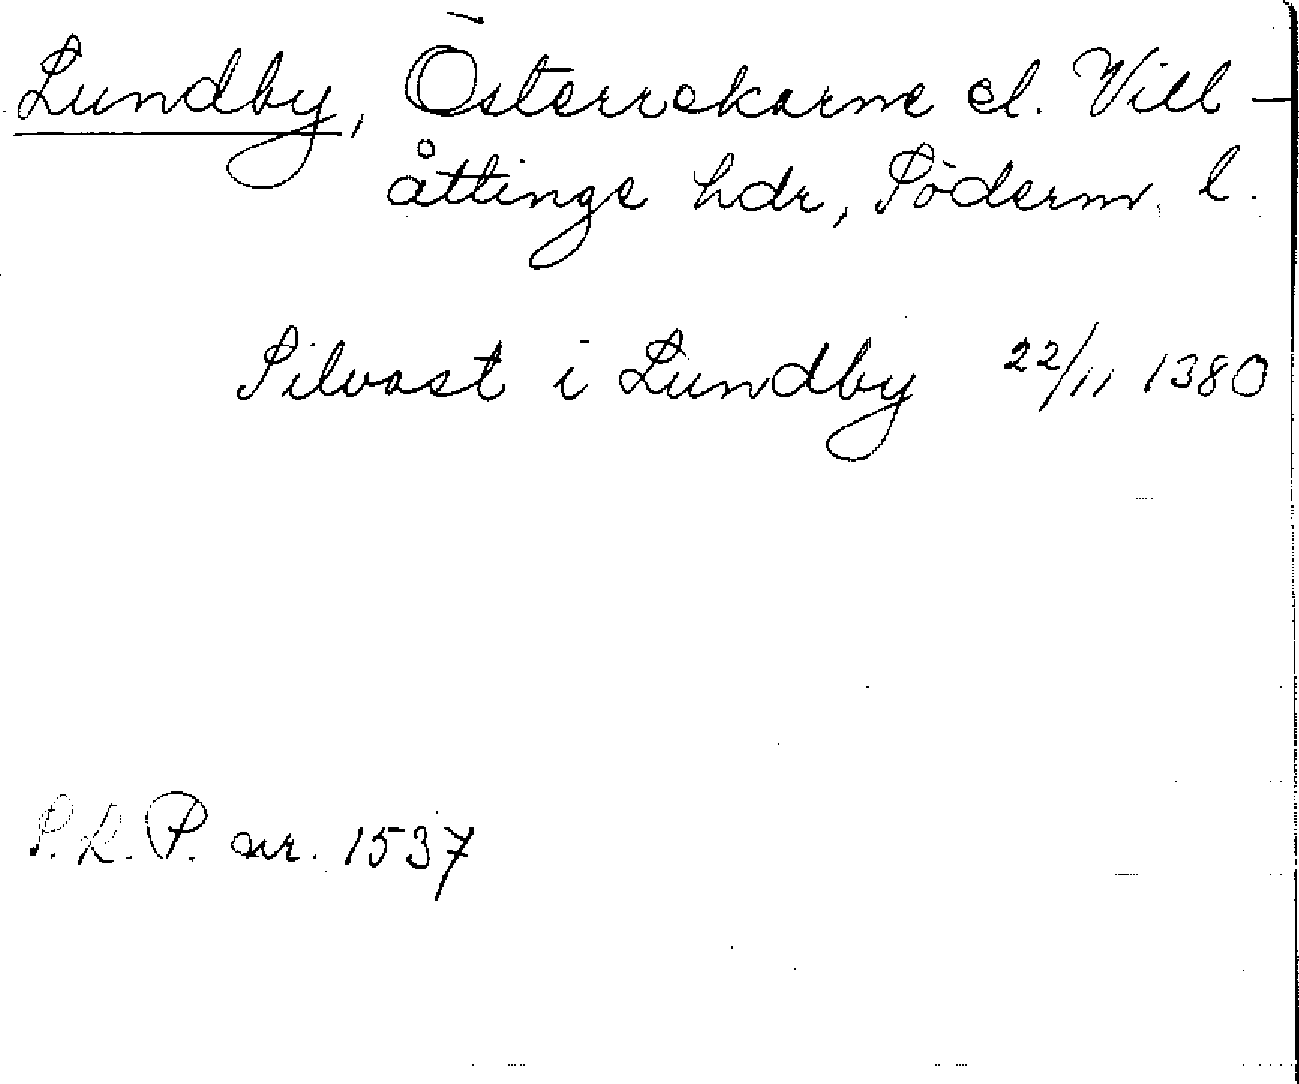 Lundby, Österrekarne el. Vill-
åttinge hdr, Söderm. l.
Silvast i Lundby 22/11 1380
S.R.P. nr. 1537